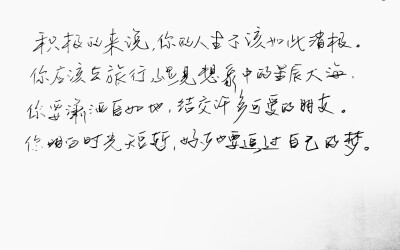 积极的来说，你的人生不该如此消极。
你应该去旅行，遇见想象中的星辰大海，
你要潇洒自如地，结交许多可爱的朋友。
你的时光短暂，好歹也要追过自己的梦。